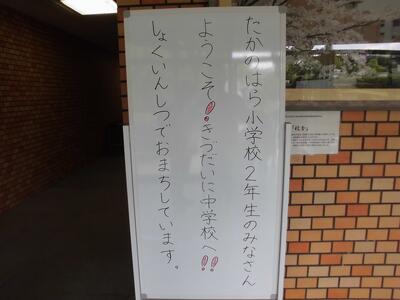 たかのはら小学校２年生のみなさん
ようこそ!きづだいに中学校へ!!
しょくいんしつでおまちしています。